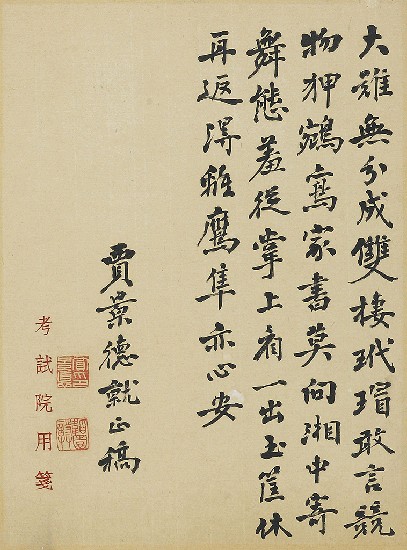 大難無分成雙棲玳瑁敢言競
物狎鵷鸞家書莫向湘中寄
舞態羞從掌上看一出玉筐休
再返得離鷹隼亦心安
賈景德就正稿
考試院用箋